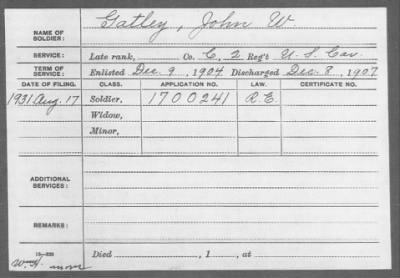 NAME OF SOLDIER: Gatley, John W.
SERVICE: Late rank, Co. C, 2 Reg't U.S. Cav.
TERM OF SERVICE: Enlisted Dec. 9, 1904 Discharged Dec. 8, 1907
DATE OF FILING. CLASS. APPLICATION NO. LAW. CERTIFICATE NO.
1931 Aug. 17 Soldier, 1700241 R.E.
Widow,
Minor,
ADDITIONAL SERVICES:
REMARKS:
Died , 1 , at